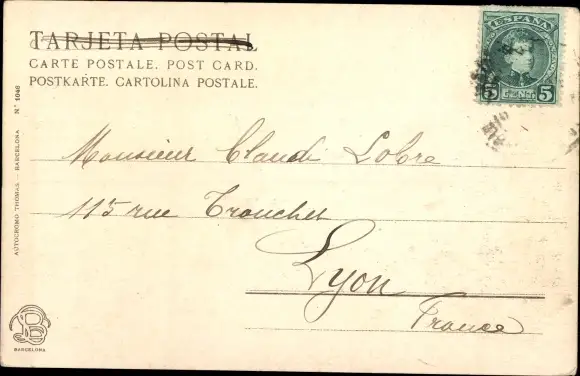 TARJETA POSTAL
CARTE POSTALE. POST CARD.
POSTKARTE. CARTOLINA POSTALE.
ESPAÑA
5 CENT. 5
Monsieur Claude Lobre
115 rue Tronchet
Lyon
France
AUTOCROMO THOMAS - BARCELONA N° 1046
BARCELONA